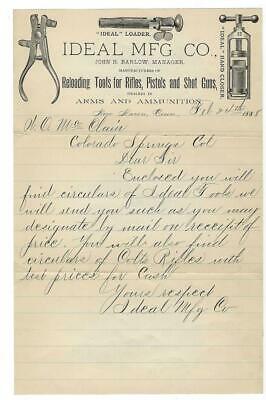 "IDEAL" LOADER.
IDEAL MFG CO.
JOHN H. BARLOW, MANAGER.
MANUFACTURERS OF
Reloading Tools for Rifles, Pistols and Shot Guns
DEALERS IN
ARMS AND AMMUNITION.
"IDEAL" HAND CLOSER.
New Haven, Conn. Feb 24th 1888
W. O. McClain
Colorado Springs Col
Dear Sir
Enclosed you will
find circulars of Ideal Tools we
will send you such as you may
designate by mail on receipt of
price. You will also find
circulars of Colts Rifles with
best prices for Cash
Yours respect
Ideal Mfg Co